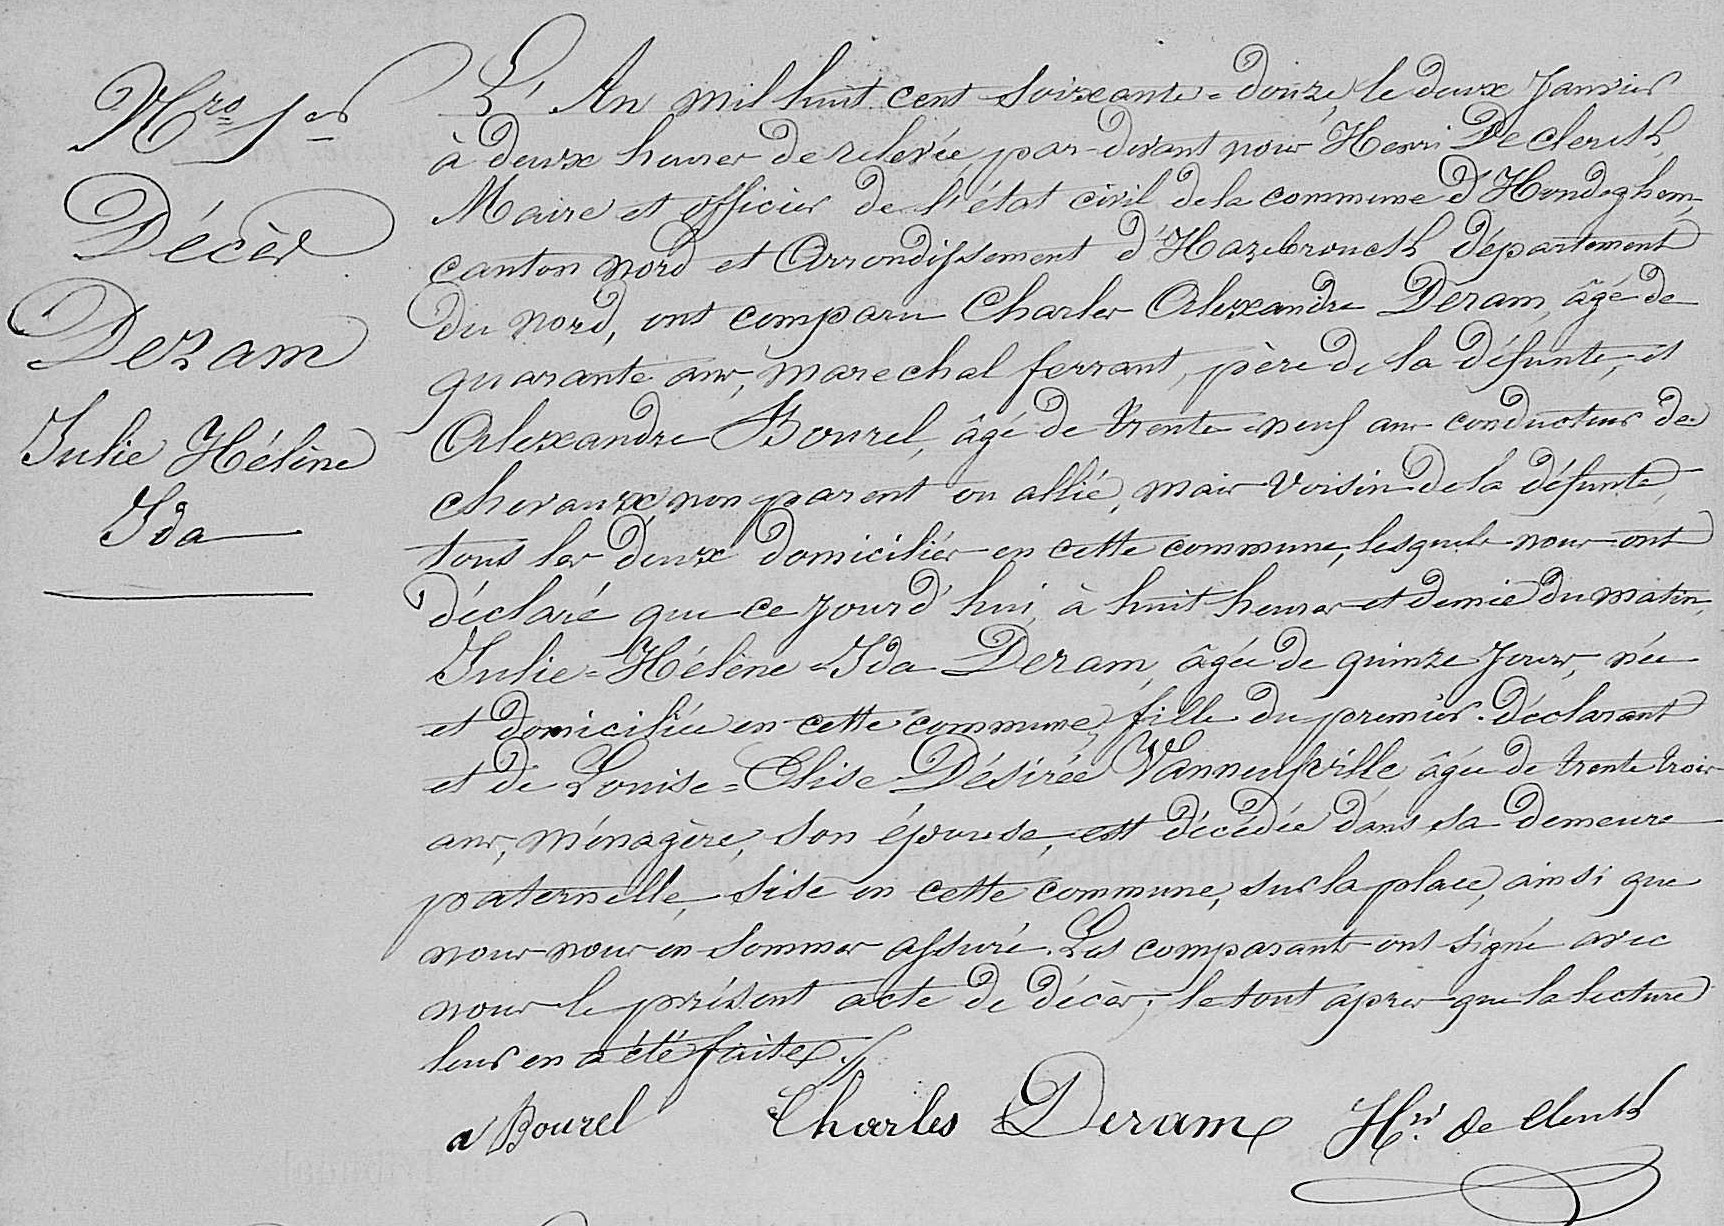 Nro 1er
Décès
Deram
Julie Hélène
Ida
L'An mil huit cent soixante=douze, le deux Janvier
à deux heures de relevée, par-devant nous Henri De Clercck,
Maire et officier de l'état civil de la commune d'Hondeghem,
canton nord et Arrondissement d'Hazebrouck département
du nord, ont comparu Charles Alexandre Deram, âgé de
quarante ans, marechal ferrant, père de la défunte, et
Alexandre Bourel, âgé de trente-neuf ans conducteur de
chevaux, non parent ou allié, mais voisin de la défunte,
tous les deux domiciliés en cette commune, lesquels nous ont
déclaré que ce jourd'hui, à huit heures et demie du matin,
Julie=Hélène=Ida Deram, âgée de quinze jours, née
et domiciliée en cette commune, fille du premier déclarant
et de Louise=Elise Désirée Vanneufville, âgée de trente trois
ans, ménagère, son épouse, est décédée dans sa demeure
paternelle, sise en cette commune, sur la place, ainsi que
nous nous en sommes assuré. Les comparants ont signé avec
nous le présent acte de décès, le tout après que la lecture
leur en a été faite.
a Bourel Charles Deram Hri De Clerck